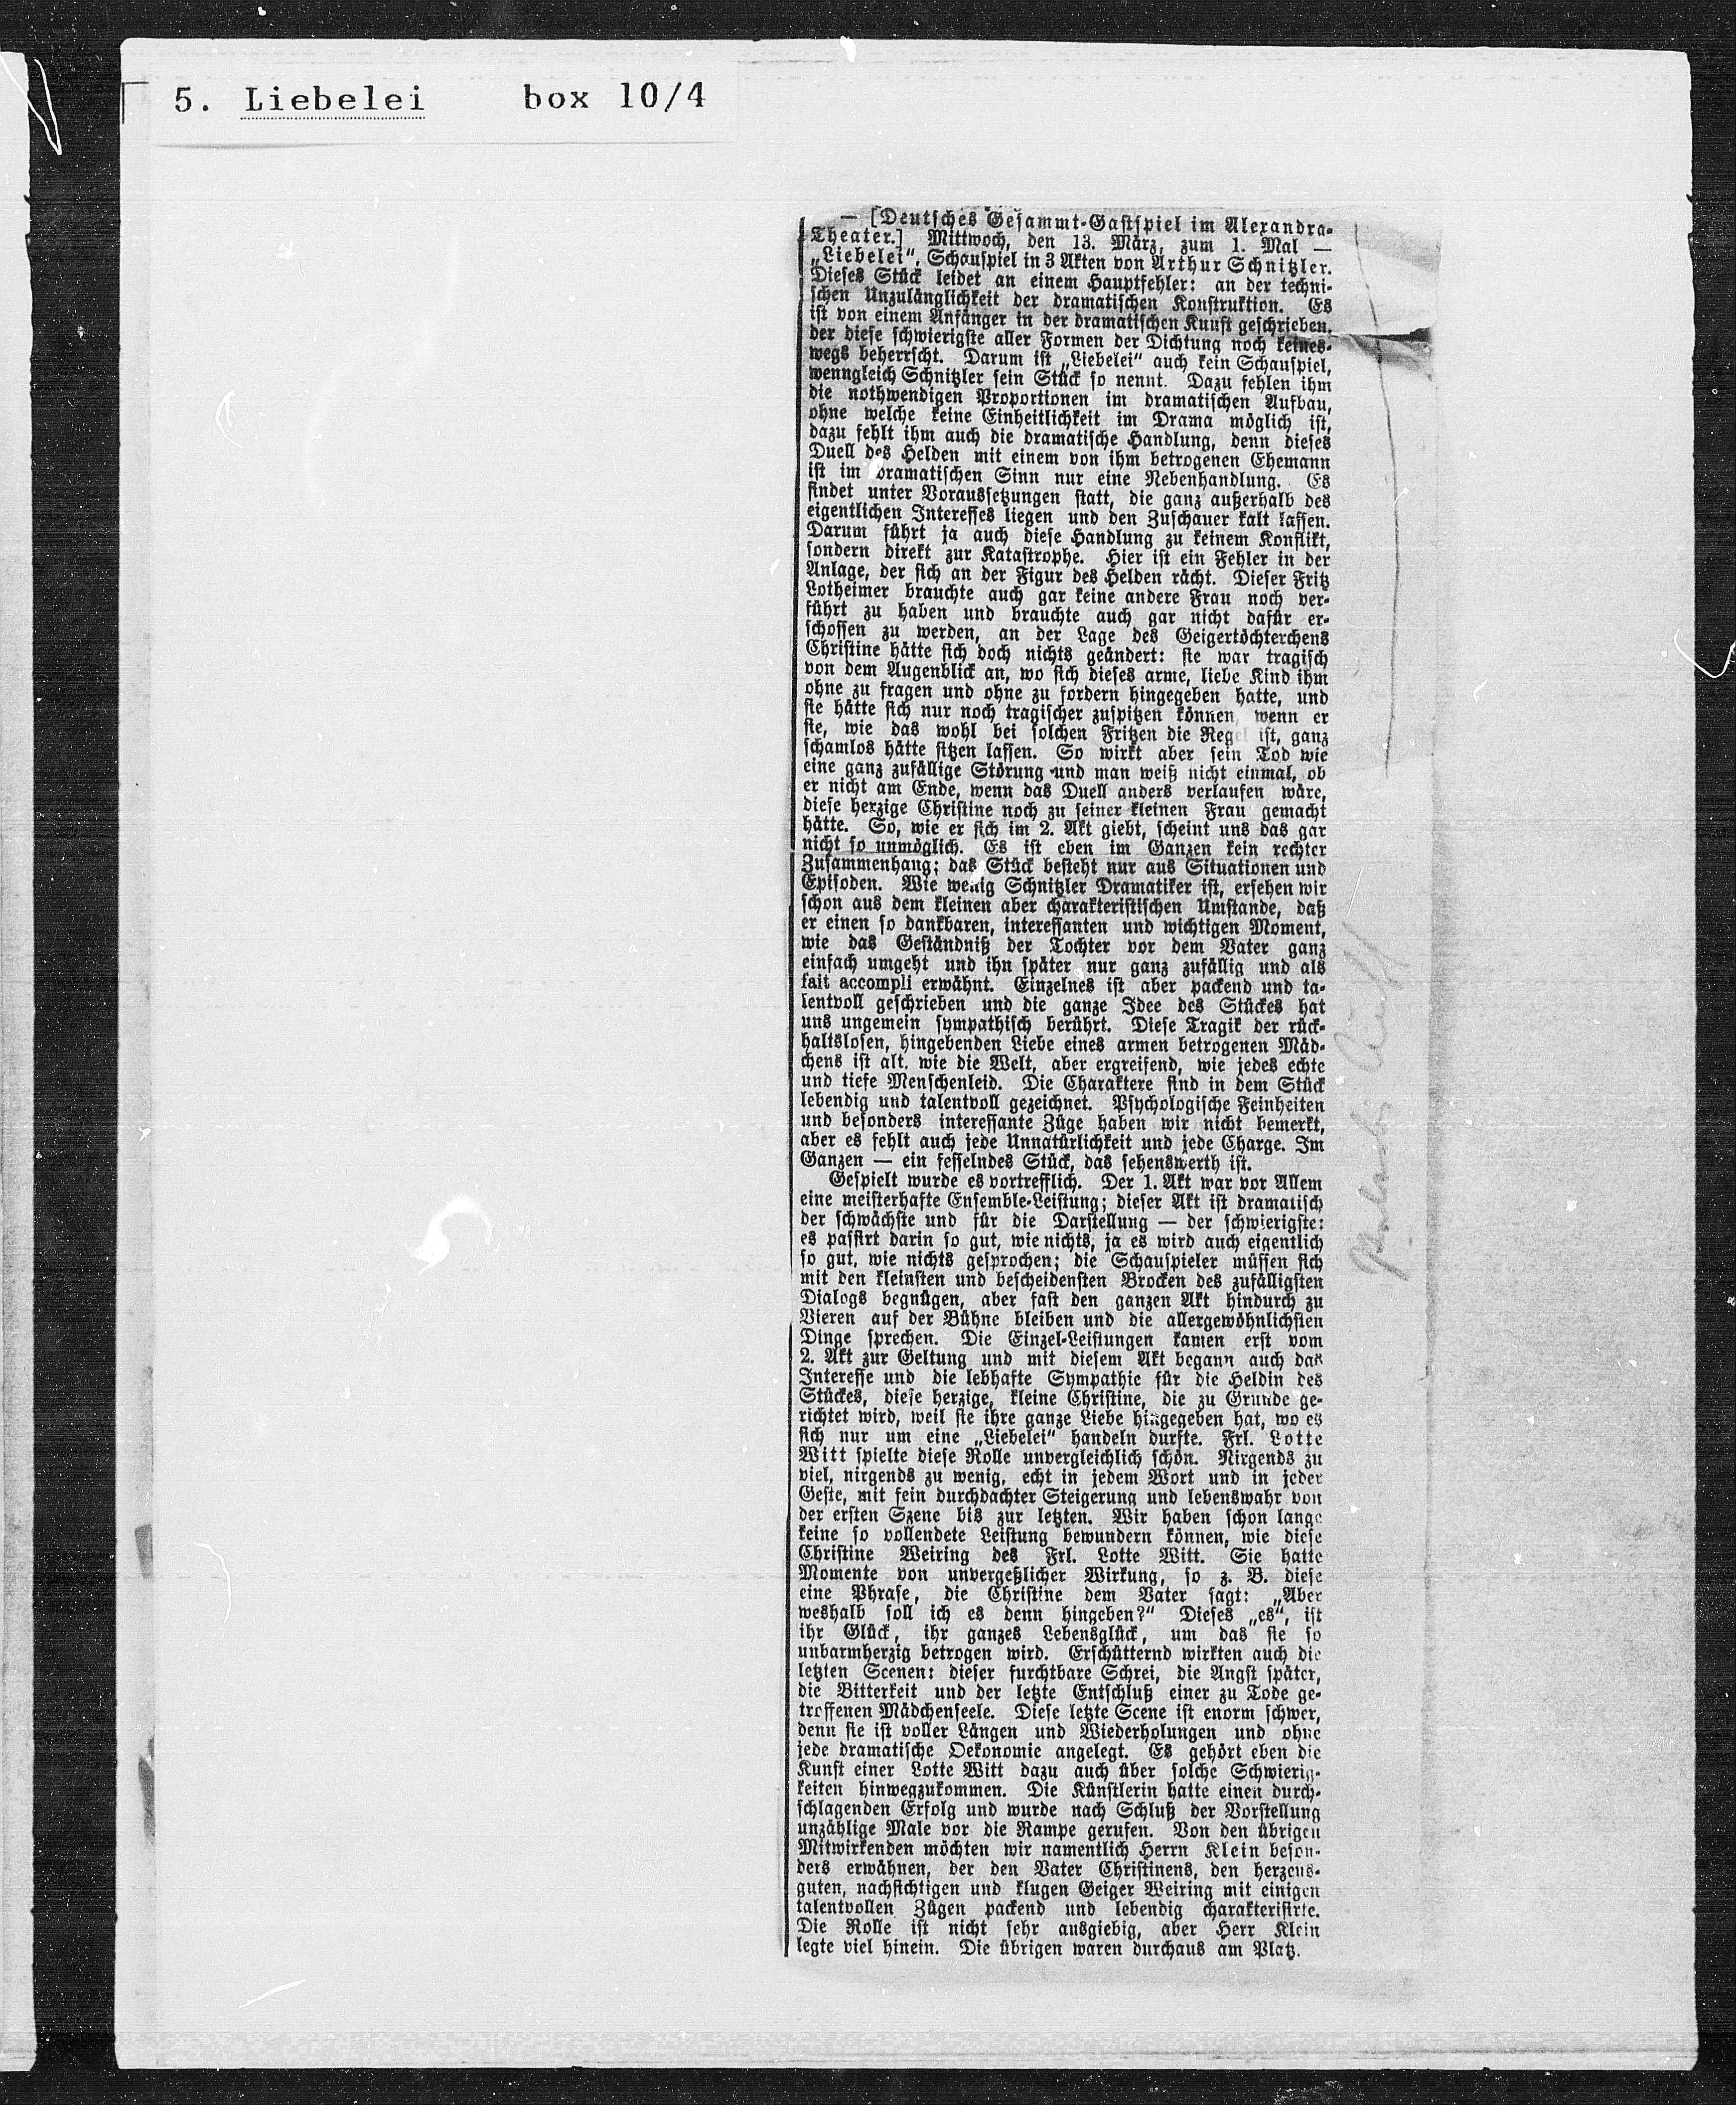 5. Liebelei box 10/4
— [Deutsches Gesammt-Gastspiel im Alexandra-
Theater.] Mittwoch, den 13. März, zum 1. Mal —
„Liebelei“, Schauspiel in 3 Akten von Arthur Schnitzler.
Dieses Stück leidet an einem Hauptfehler: an der techni-
schen Unzulänglichkeit der dramatischen Konstruktion. Es
ist von einem Anfänger in der dramatischen Kunst geschrieben,
der diese schwierigste aller Formen der Dichtung noch keines-
wegs beherrscht. Darum ist „Liebelei“ auch kein Schauspiel,
wenngleich Schnitzler sein Stück so nennt. Dazu fehlen ihm
die nothwendigen Proportionen im dramatischen Aufbau,
ohne welche keine Einheitlichkeit im Drama möglich ist,
dazu fehlt ihm auch die dramatische Handlung, denn dieses
Duell des Helden mit einem von ihm betrogenen Ehemann
ist im dramatischen Sinn nur eine Nebenhandlung. Es
findet unter Voraussetzungen statt, die ganz außerhalb des
eigentlichen Interesses liegen und den Zuschauer kalt lassen.
Darum führt ja auch diese Handlung zu keinem Konflikt,
sondern direkt zur Katastrophe. Hier ist ein Fehler in der
Anlage, der sich an der Figur des Helden rächt. Dieser Fritz
Lotheimer brauchte auch gar keine andere Frau noch ver-
führt zu haben und brauchte auch gar nicht dafür er-
schossen zu werden, an der Lage des Geigertöchterchens
Christine hätte sich doch nichts geändert: sie war tragisch
von dem Augenblick an, wo sich dieses arme, liebe Kind ihm
ohne zu fragen und ohne zu fordern hingegeben hatte, und
sie hätte sich nur noch tragischer zuspitzen können, wenn er
sie, wie das wohl bei solchen Fritzen die Regel ist, ganz
schamlos hätte sitzen lassen. So wirkt aber sein Tod wie
eine ganz zufällige Störung und man weiß nicht einmal, ob
er nicht am Ende, wenn das Duell anders verlaufen wäre,
diese herzige Christine noch zu seiner kleinen Frau gemacht
hätte. So, wie er sich im 2. Akt giebt, scheint uns das gar
nicht so unmöglich. Es ist eben im Ganzen kein rechter
Zusammenhang; das Stück besteht nur aus Situationen und
Episoden. Wie wenig Schnitzler Dramatiker ist, ersehen wir
schon aus dem kleinen aber charakteristischen Umstande, daß
er einen so dankbaren, interessanten und wichtigen Moment,
wie das Geständniß der Tochter vor dem Vater ganz
einfach umgeht und ihn später nur ganz zufällig und als
fait accompli erwähnt. Einzelnes ist aber packend und ta-
lentvoll geschrieben und die ganze Idee des Stückes hat
uns ungemein sympathisch berührt. Diese Tragik der rück-
haltslosen, hingebenden Liebe eines armen betrogenen Mäd-
chens ist alt, wie die Welt, aber ergreifend, wie jedes echte
und tiefe Menschenleid. Die Charaktere sind in dem Stück
lebendig und talentvoll gezeichnet. Psychologische Feinheiten
und besonders interessante Züge haben wir nicht bemerkt,
aber es fehlt auch jede Unnatürlichkeit und jede Charge. Im
Ganzen — ein fesselndes Stück, das sehenswerth ist.
Gespielt wurde es vortrefflich. Der 1. Akt war vor Allem
eine meisterhafte Ensemble-Leistung; dieser Akt ist dramatisch
der schwächste und für die Darstellung — der schwierigste:
es passirt darin so gut, wie nichts, ja es wird auch eigentlich
so gut, wie nichts gesprochen; die Schauspieler müssen sich
mit den kleinsten und bescheidensten Brocken des zufälligsten
Dialogs begnügen, aber fast den ganzen Akt hindurch zu
Vieren auf der Bühne bleiben und die allergewöhnlichsten
Dinge sprechen. Die Einzel-Leistungen kamen erst vom
2. Akt zur Geltung und mit diesem Akt begann auch das
Interesse und die lebhafte Sympathie für die Heldin des
Stückes, diese herzige, kleine Christine, die zu Grunde ge-
richtet wird, weil sie ihre ganze Liebe hingegeben hat, wo es
sich nur um eine „Liebelei“ handeln durfte. Frl. Lotte
Witt spielte diese Rolle unvergleichlich schön. Nirgends zu
viel, nirgends zu wenig, echt in jedem Wort und in jeder
Geste, mit fein durchdachter Steigerung und lebenswahr von
der ersten Szene bis zur letzten. Wir haben schon lange
keine so vollendete Leistung bewundern können, wie diese
Christine Weiring des Frl. Lotte Witt. Sie hatte
Momente von unvergeßlicher Wirkung, so z. B. diese
eine Phrase, die Christine dem Vater sagt: „Aber
weshalb soll ich es denn hingeben?“ Dieses „es“, ist
ihr Glück, ihr ganzes Lebensglück, um das sie so
unbarmherzig betrogen wird. Erschütternd wirkten auch die
letzten Scenen: dieser furchtbare Schrei, die Angst später,
die Bitterkeit und der letzte Entschluß einer zu Tode ge-
troffenen Mädchenseele. Diese letzte Scene ist enorm schwer,
denn sie ist voller Längen und Wiederholungen und ohne
jede dramatische Oekonomie angelegt. Es gehört eben die
Kunst einer Lotte Witt dazu auch über solche Schwierig-
keiten hinwegzukommen. Die Künstlerin hatte einen durch-
schlagenden Erfolg und wurde nach Schluß der Vorstellung
unzählige Male vor die Rampe gerufen. Von den übrigen
Mitwirkenden möchten wir namentlich Herrn Klein beson-
ders erwähnen, der den Vater Christinens, den herzens-
guten, nachsichtigen und klugen Geiger Weiring mit einigen
talentvollen Zügen packend und lebendig charakterisirte.
Die Rolle ist nicht sehr ausgiebig, aber Herr Klein
legte viel hinein. Die übrigen waren durchaus am Platz.